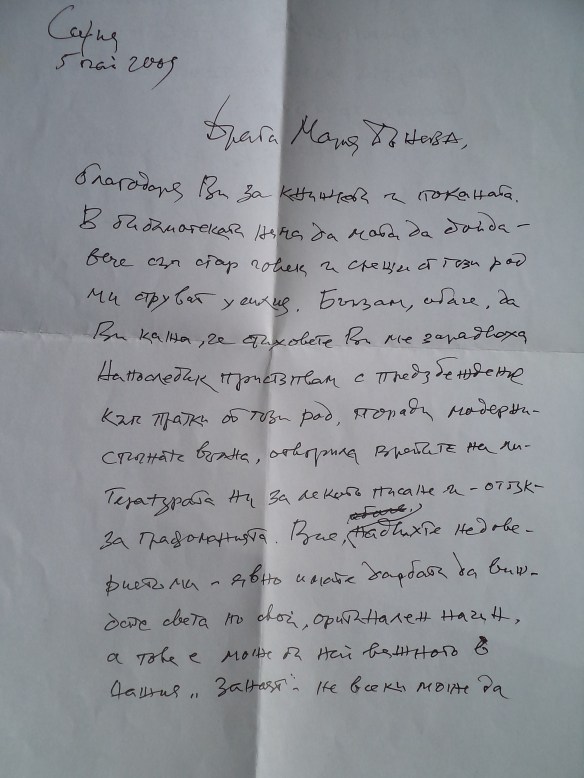 София
5 май 2009
Драга Мария Донева,
благодаря Ви за книжката и поканата.
В библиотеката няма да мога да дойда –
вече съм стар човек и срещи от този род
ми струват усилия. Бързам, обаче, да
Ви кажа, че стиховете Ви ме зарадваха
Напоследък пристъпвам с предубеждение
към пратки от този род, поради модерни-
стичната вълна, отворила вратите на ли-
тературата ни за лекото писане и – оттук –
за графоманията. Вие, обаче, надвихте недове-
рието ми – явно имате дарбата да виж-
дате света по свой, оригинален начин,
а това е може би най важното в
нашия „занаят" – не всеки може да